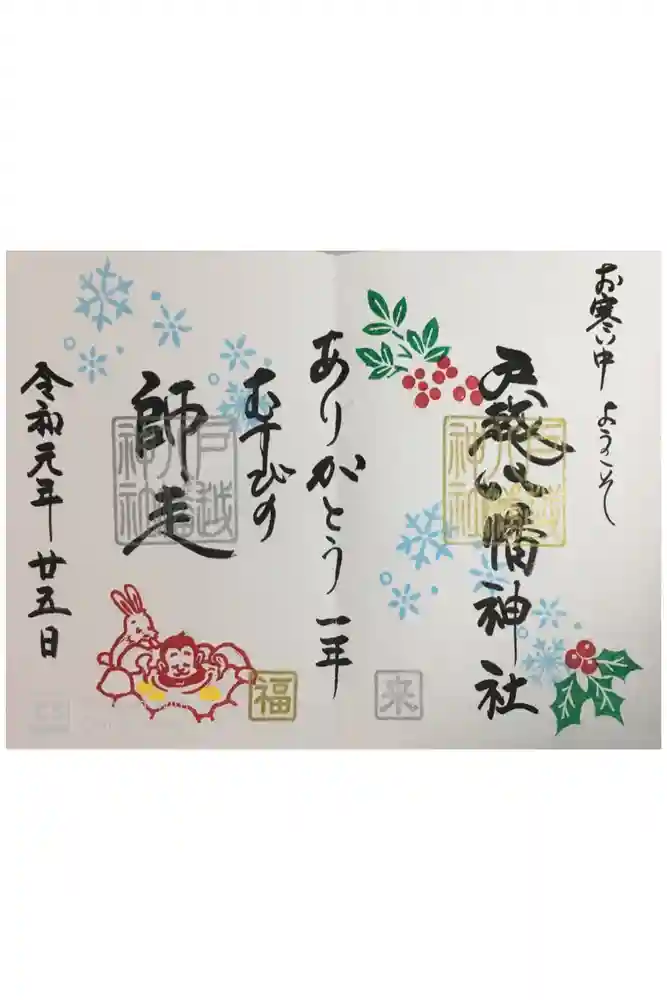 お寒い中 ようこそ
戸越八幡神社
来
ありがとう 一年
むすびの
師走
戸越
八幡
神社
福
令和元年 廿五日